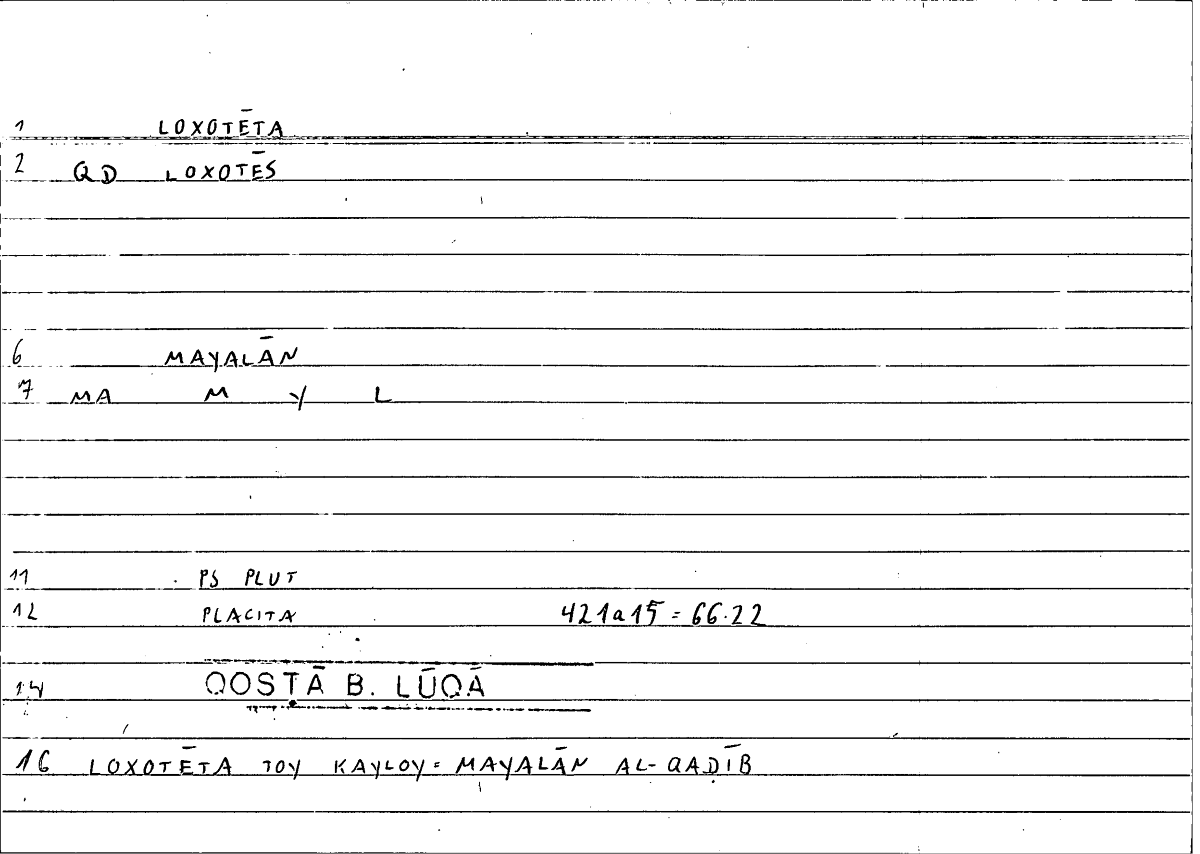 1 LOXOTĒTA
2 QD LOXOTĒS
6 MAYALĀN
7 MA M Y L
11 PS PLUT
12 PLACITA 421a15 = 66.22
14 QOSṬĀ B. LŪQĀ
16 LOXOTĒTA TOY KAYLOY = MAYALĀN AL-QAḌĪB